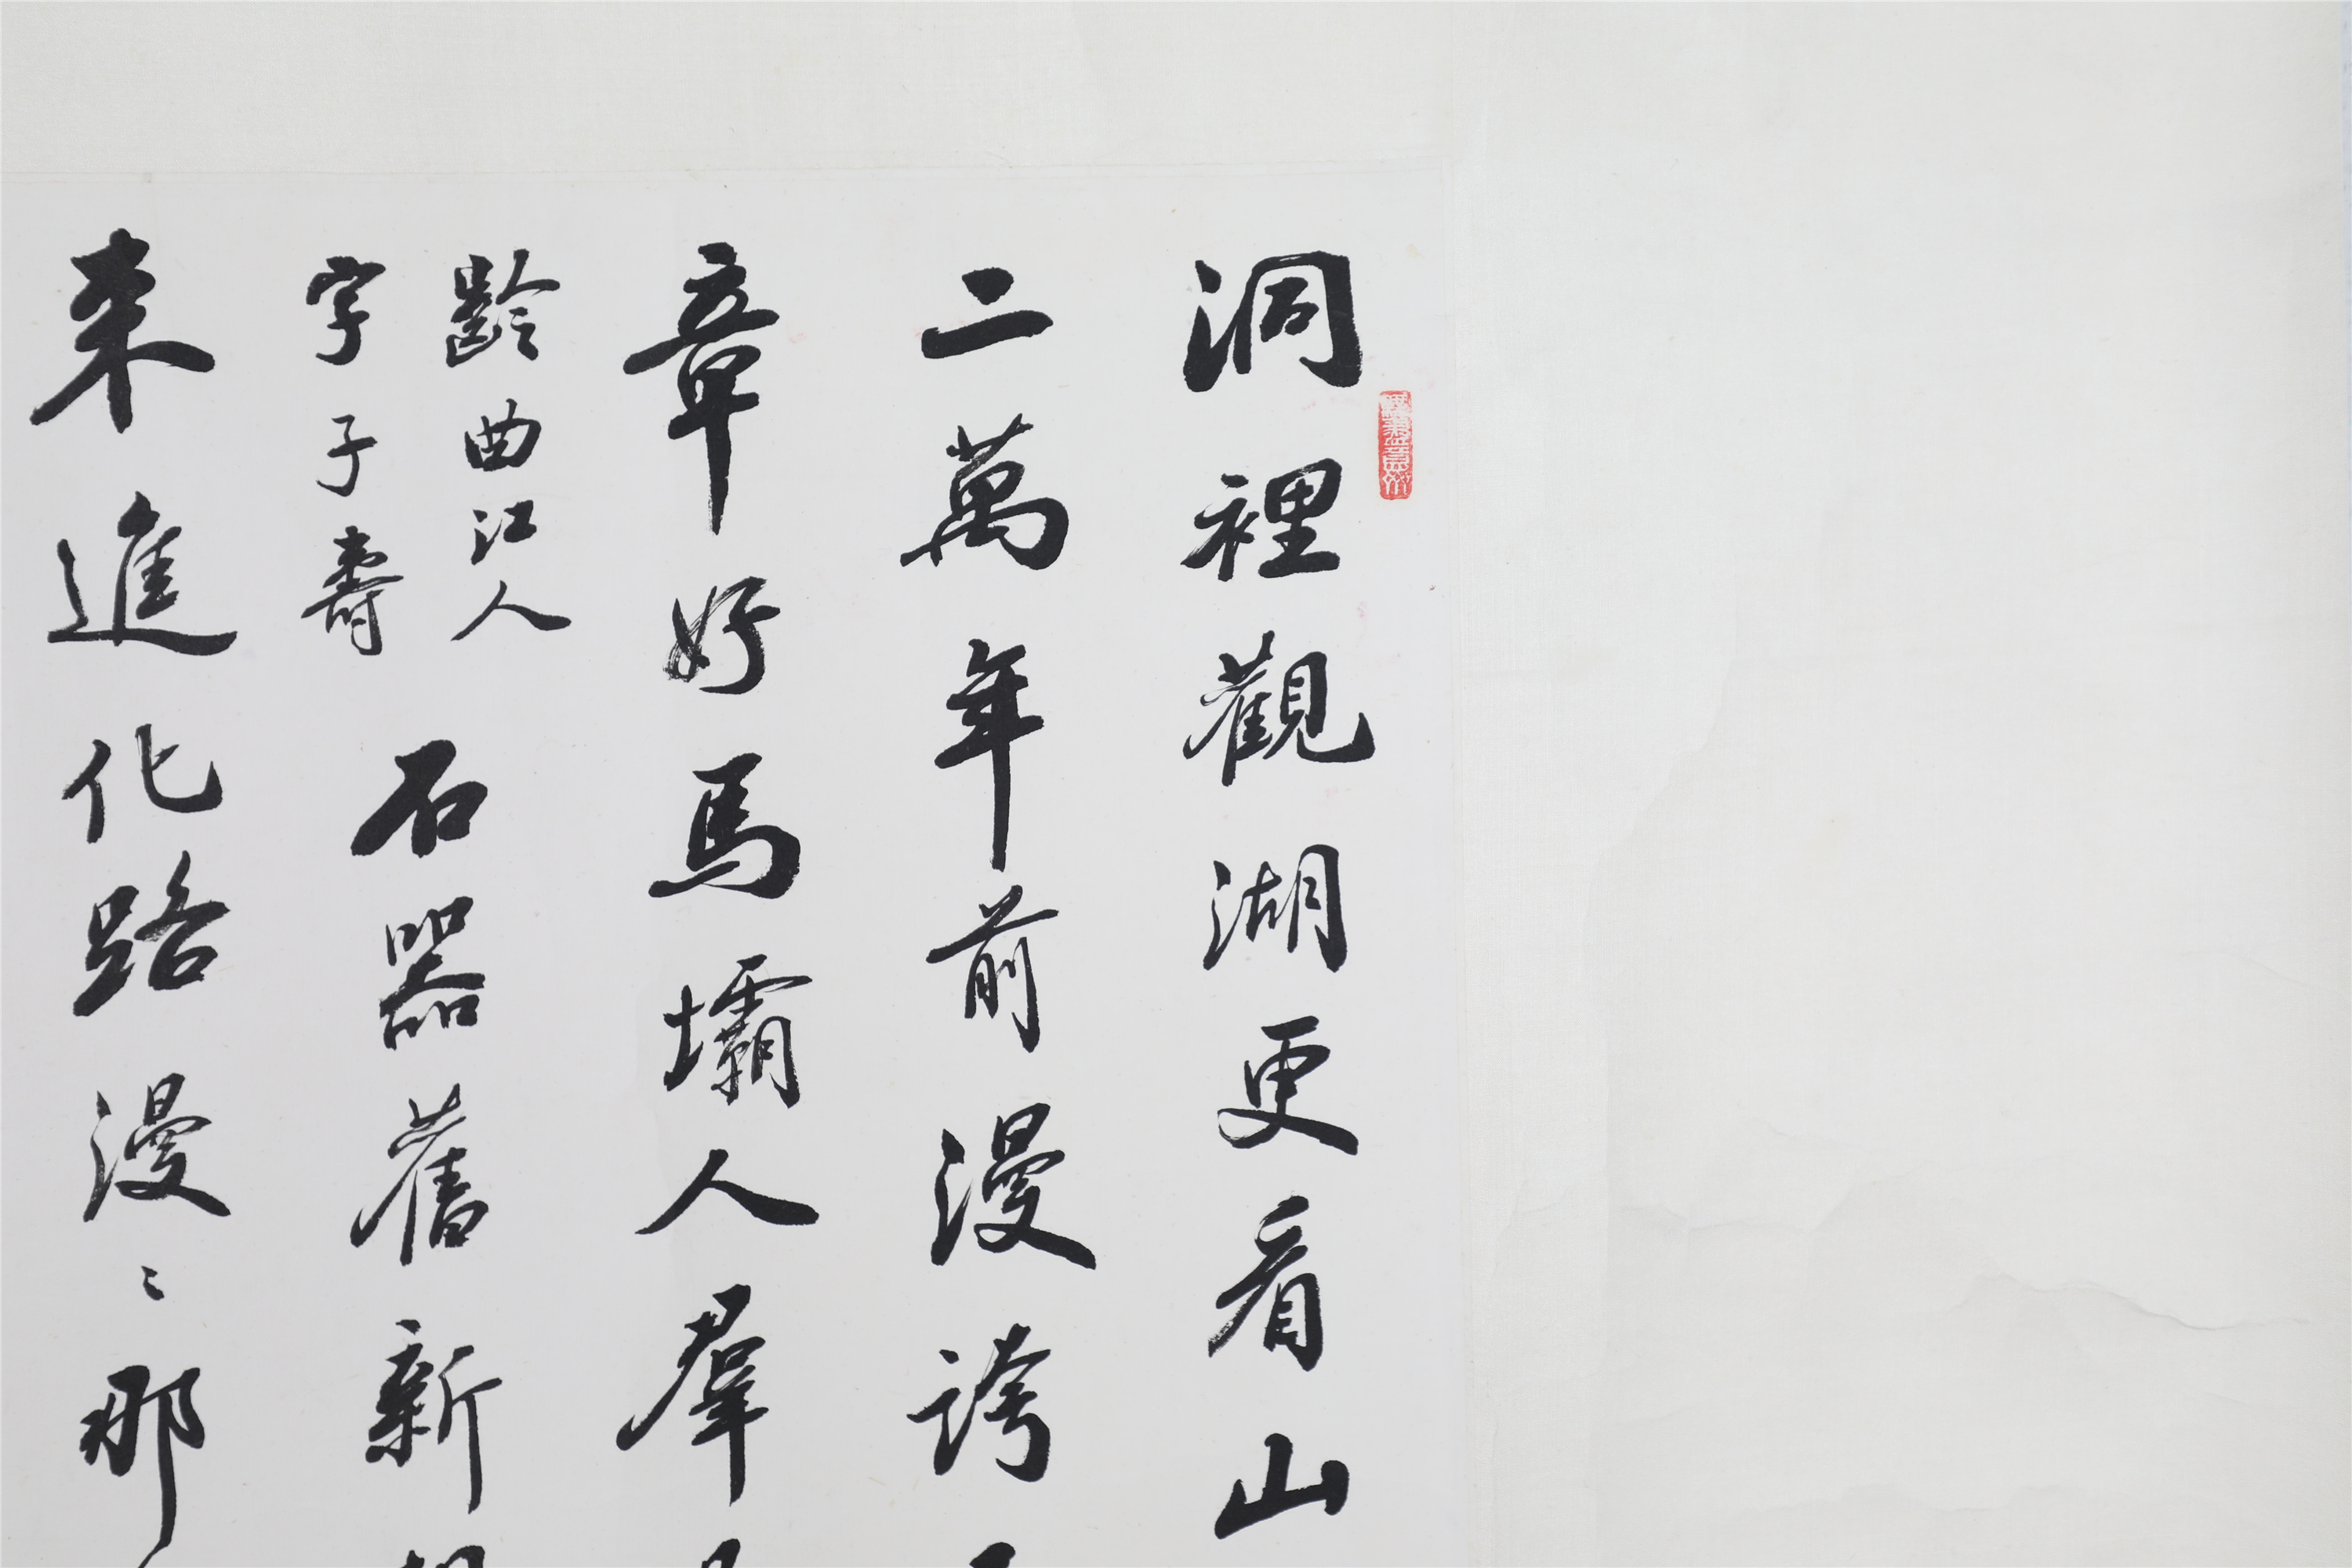 洞裡觀湖更看山
二萬年前漫誇
章好馬壩人羣
齡曲江人
字子壽
石器舊新
來進化路漫〻那